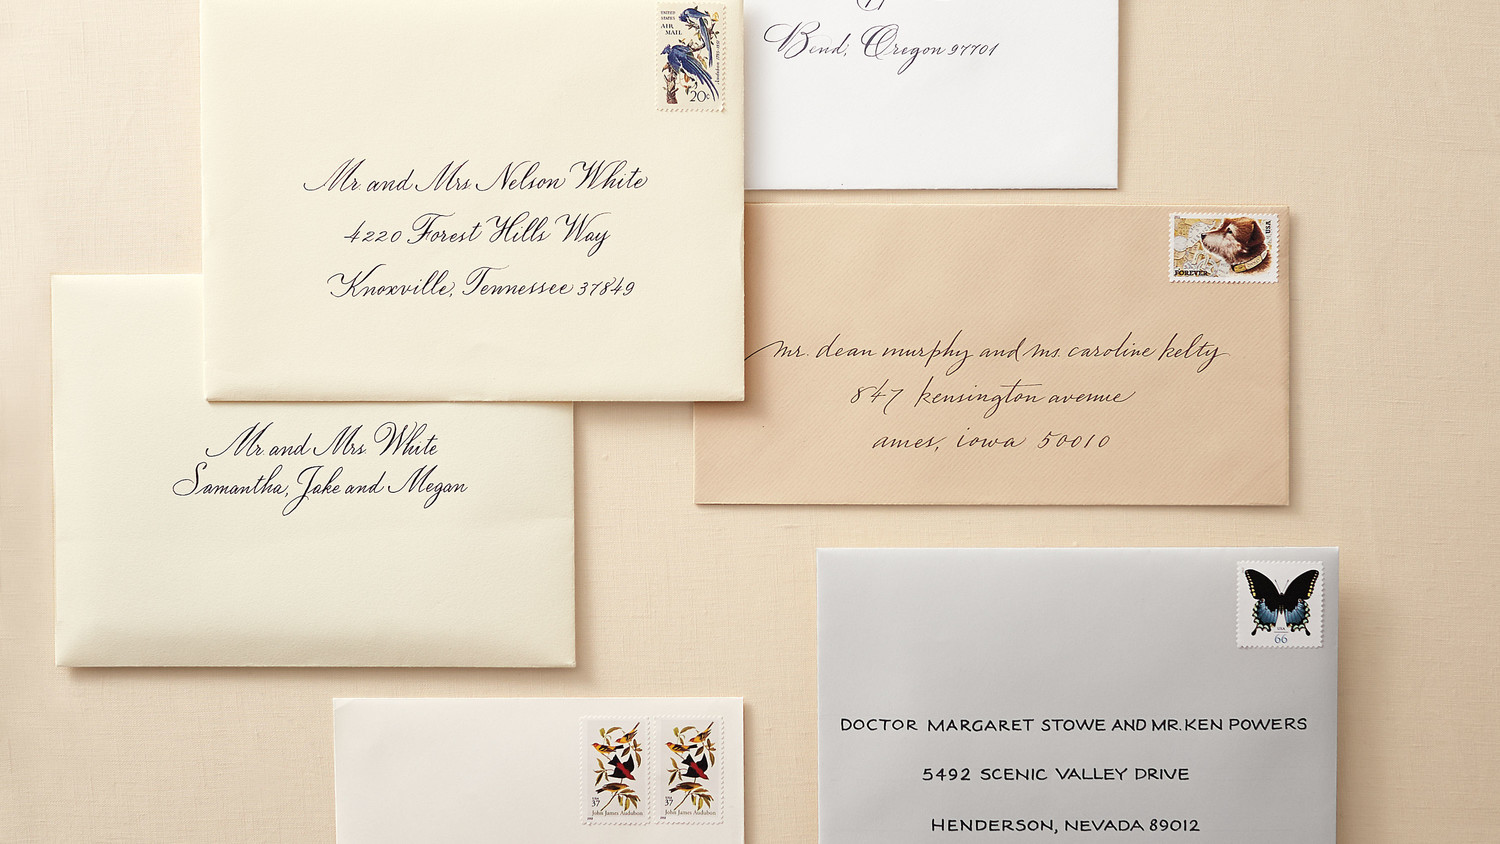 UNITED STATES
AIR MAIL
Audubon
20c
Bend, Oregon 97701
Mr. and Mrs. Nelson White
4220 Forest Hills Way
Knoxville, Tennessee 37849
USA
FOREVER
mr. dean murphy and ms. caroline kelty
847 kensington avenue
ames, iowa 50010
Mr. and Mrs. White
Samantha, Jake and Megan
USA
66
DOCTOR MARGARET STOWE AND MR. KEN POWERS
5492 SCENIC VALLEY DRIVE
HENDERSON, NEVADA 89012
USA
37
John James Audubon
USA
37
John James Audubon